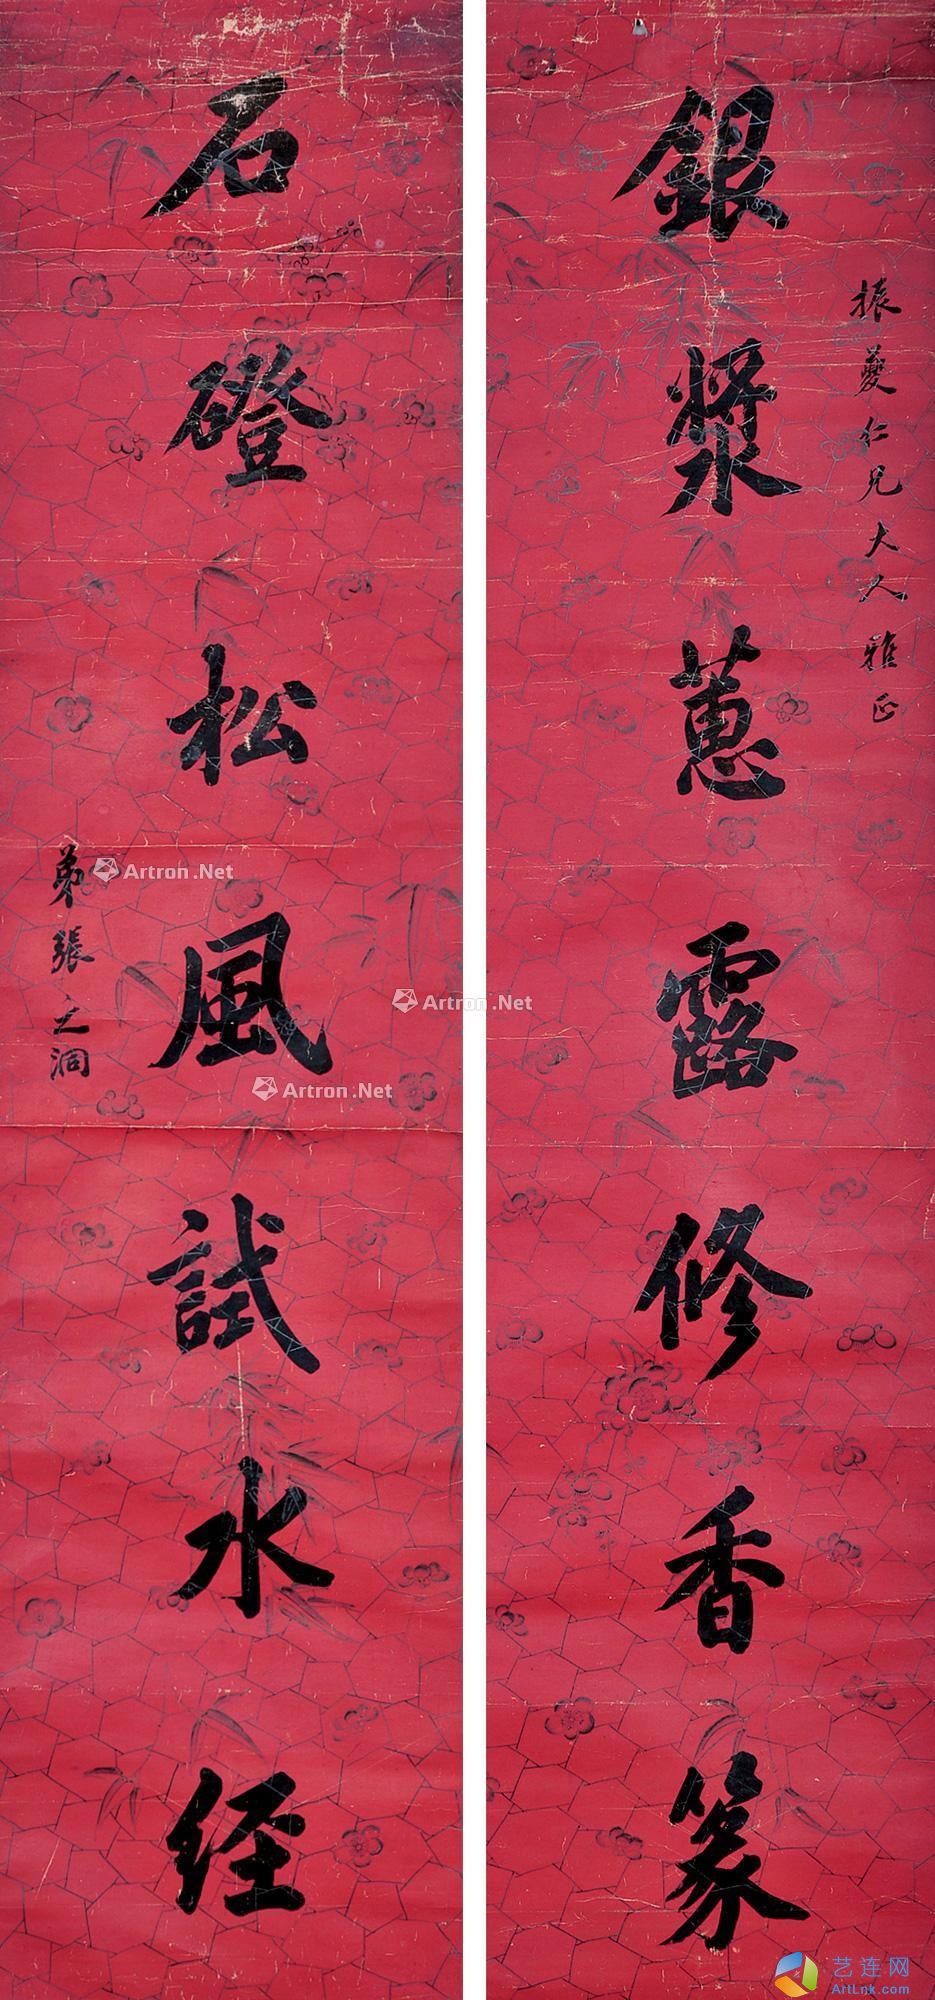 銀漿蕙露修香篆
振夔仁兄大人雅正
石磴松風試水经
弟張之洞
Artron.Net
Artron.Net
Artron.Net
艺连网
ArtLnk.com